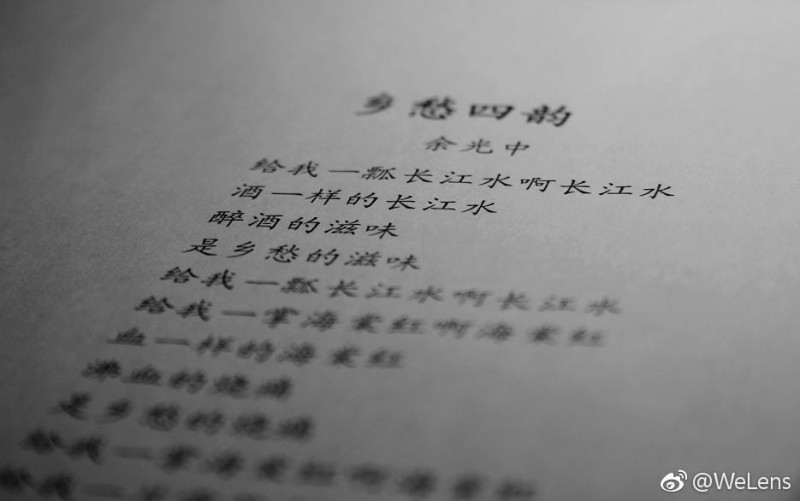 乡愁四韵
余光中
给我一瓢长江水啊长江水
酒一样的长江水
醉酒的滋味
是乡愁的滋味
给我一瓢长江水啊长江水
给我一掌海棠红啊海棠红
血一样的海棠红
沸血的烧痛
是乡愁的烧痛
给我一掌海棠红啊海棠红
给我一
@WeLens